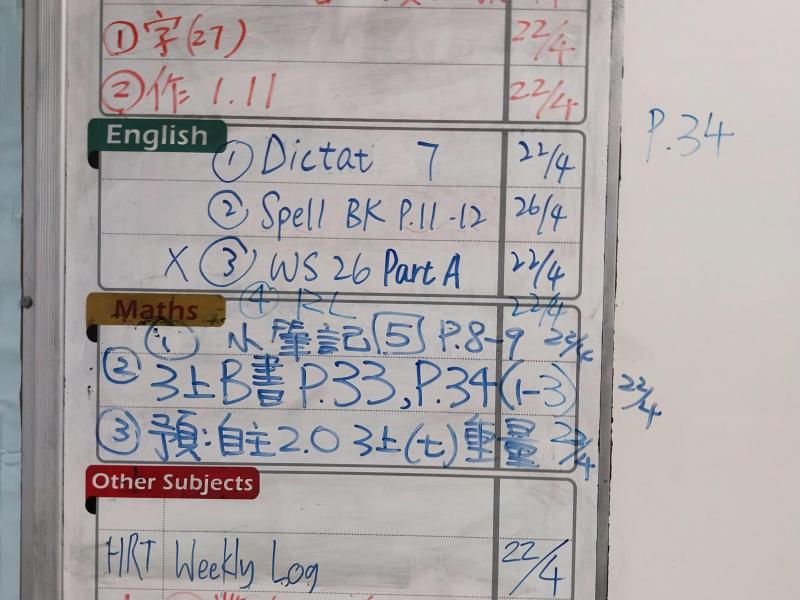 ① 字(27) 22/4
② 作 1.11 22/4
English
① Dictat 7 22/4
P.34
② Spell BK P.11-12 26/4
X ③ WS 26 Part A 22/4
Maths
④ RL 22/4
① 小筆記 5 P.8-9 22/4
② 3上B書 P.33, P.34(1-3) 22/4
③ 預:自主2.0 3上(七)重量 22/4
Other Subjects
HRT Weekly Log 22/4